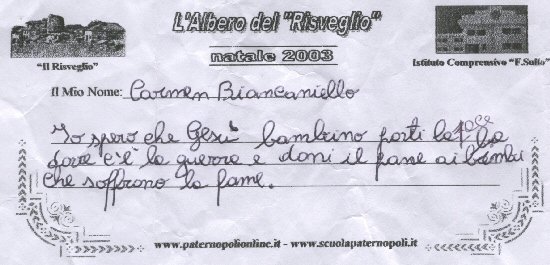 L'Albero del "Risveglio"
natale 2003
"Il Risveglio"
Istituto Comprensivo "F.Sullo"
Il Mio Nome: Carmen Biancaniello
Io spero che Gesù bambino porti la pace la
dove c'è la guerra e doni il pane ai bambi
che soffrono la fame.
www.paternopolionline.it - www.scuolapaternopoli.it